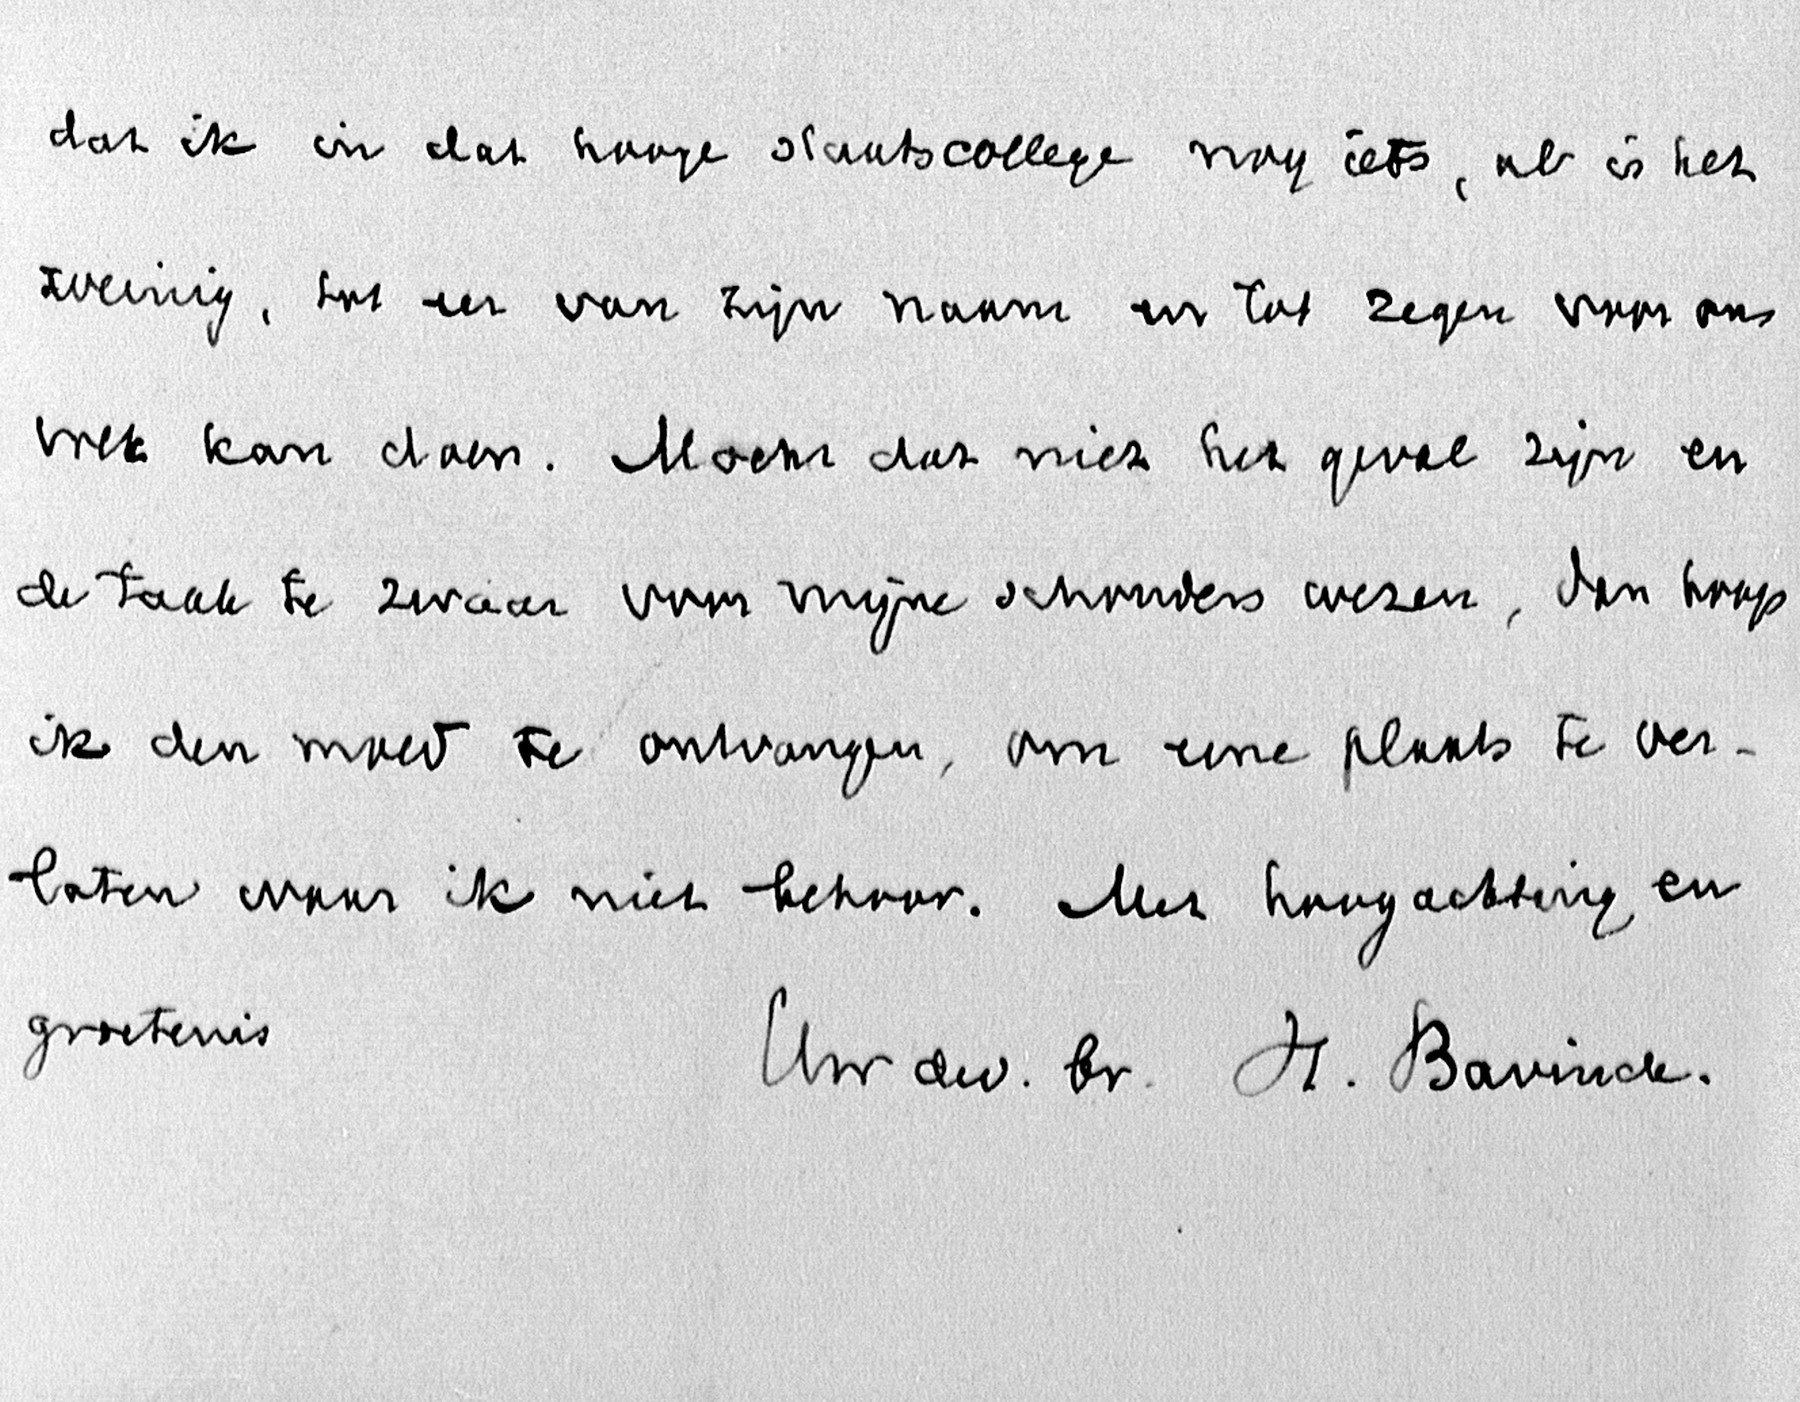 dat ik in dat hooge staatscollege nog iets, al is het
weinig, tot eer van zijn naam en tot zegen voor ons
volk kan doen. Mocht dat niet het geval zijn en
de taak te zwaar voor mijne schouders wezen, dan hoop
ik den moed te ontvangen, om eene plaats te ver-
laten waar ik niet behoor. Met hoogachting en
groetenis
Uw dw. br. H. Bavinck.